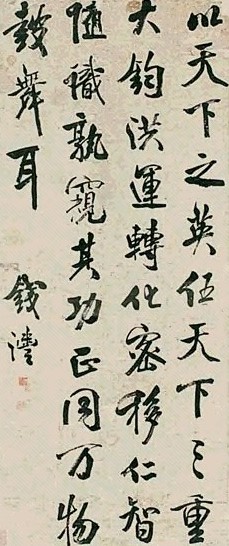 以天下之英任天下之重
大鈞洪運轉化密移仁智
随職孰窺其功正同万物
鼓舞耳
錢灃